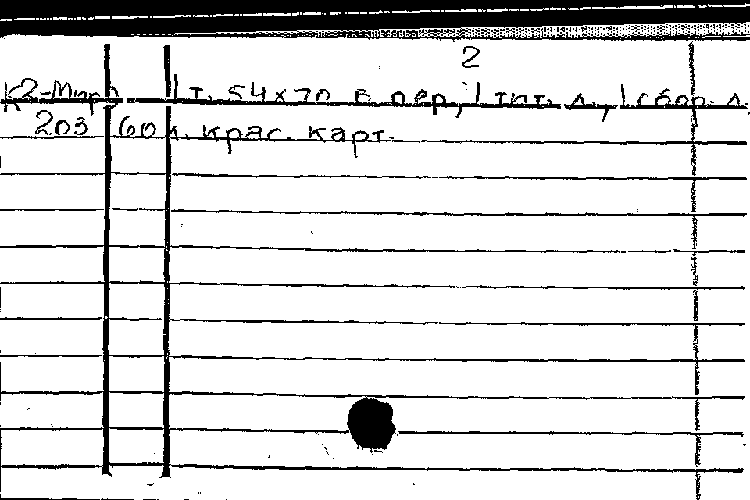 2
К2-Мир) 1 т. 54х70 в пер., 1 тит. л., 1 сбор. л.
203 60 л. крас. карт.